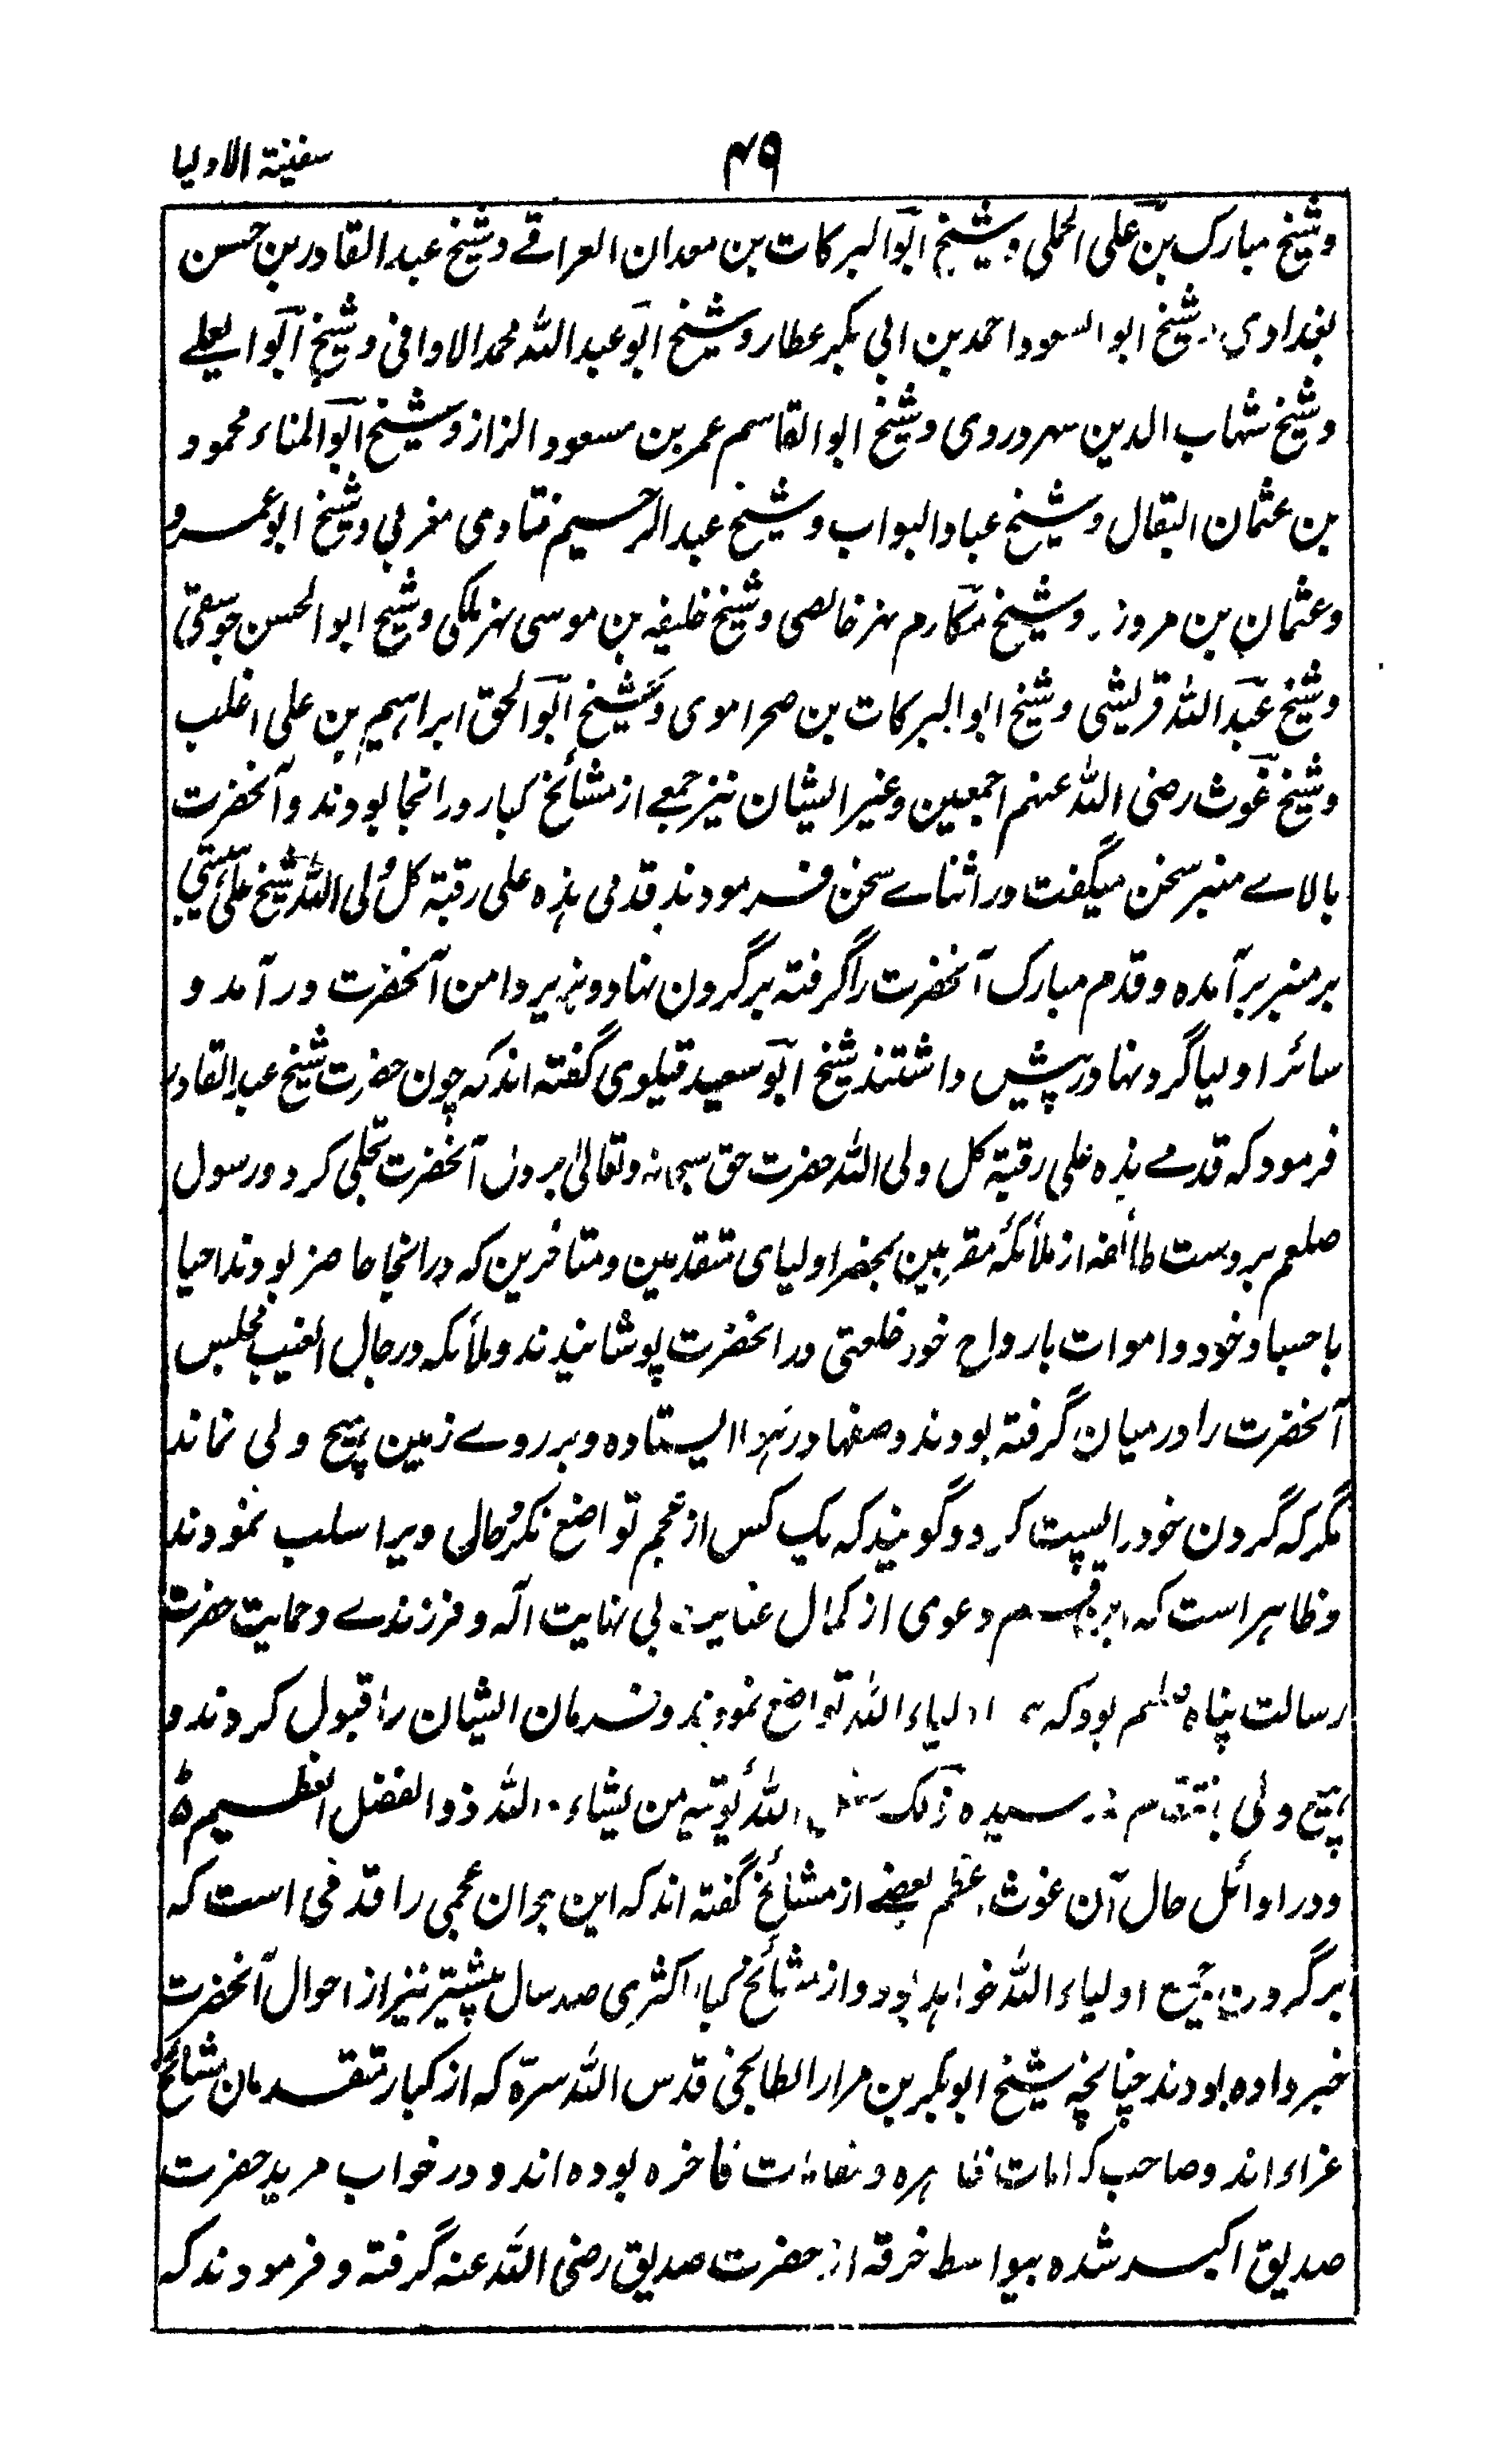 سفینۃ الاولیا
۴۹
وشیخ مبارک بن علی الحملی وشیخ ابوالبرکات بن معدان العراقے وشیخ عبدالقادر بن حسن
بغدادی وشیخ ابوالسعود احمد بن ابی بکر عطار وشیخ ابوعبداللہ محمد الاوانی وشیخ ابوالیعلے
وشیخ شہاب الدین سہروردی وشیخ ابوالقاسم عمر بن مسعود الزاز وشیخ ابوالمناء محمود و
بن عثمان البقال وشیخ عباد البواب وشیخ عبدالرحیم قتادی مغربی وشیخ ابو عمرو
وعثمان بن مروز۔ وشیخ مکارم نہر خالصی وشیخ خلیفہ بن موسی نہر ملکی وشیخ ابوالحسن جوسقی
وشیخ عبداللہ قریشی وشیخ ابوالبرکات بن صحراموی وشیخ ابوالحق ابراہیم بن علی اغلب
وشیخ غوث رضی اللہ عنہم اجمعین وغیر ایشان نیز جمعے از مشائخ کبار درانجا بودند وآنحضرت
بالاے منبر سخن میگفت در اثناے سخن فرمودند قدمی ہذہ علی رقبۃ کل ولی اللہ شیخ علی ہیتی
بر منبر برآمدہ وقدم مبارک آنحضرت را گرفتہ بر گردن نہاد وبزیر دامن آنحضرت درآمد و
سائر اولیا گردنہا در پیش داشتند شیخ ابوسعید قیلوی گفتہ اند کہ چون حضرت شیخ عبدالقادر
فرمود کہ قدمے ہذہ علی رقبۃ کل ولی اللہ حضرت حق سبحانہ وتعالی بر دل آنحضرت تجلی کرد ورسول
صلعم بردست طائفہ از ملائکہ مقربین بحضر اولیای متقدمین ومتاخرین کہ درانجا حاضر بودند احیا
باجساد خود و اموات بارواح خود خلعتی در آنحضرت پوشانیدند وملائکہ ورجال الغیب مجلس
آنحضرت را درمیان گرفتہ بودند وصفہا در ہوا ایستادہ وبر روے زمین ہیچ ولی نماند
مگر کہ گردن خود را پست کرد وگویند کہ یک کس از عجم تواضع نکرد حال ویرا سلب نمودند
وظاہر است کہ این قسم دعوی از کمال عنایت بی نہایت الہ وفرزندے وحمایت حضرت
رسالت پناہ صلعم بود کہ ہمہ اولیاء اللہ تواضع نمودند وفرمان ایشان را قبول کردند و
ہیچ ولی باین مقام نرسیدہ ذلک فضل اللہ یؤتیہ من یشاء واللہ ذوالفضل العظیم ہ
ودر اوائل حال آن غوث اعظم بعضے از مشائخ گفتہ اند کہ این جوان عجمی را قدمی است کہ
بر گردن جمیع اولیاء اللہ خواہد بود واز مشائخ کبار اکثری صد سال پیشتر نیز از احوال آنحضرت
خبر دادہ بودند چنانچہ شیخ ابوبکر بن مرار الطائحی قدس اللہ سرہ کہ از کبار متقدمان مشائخ
عراء اند وصاحب کرامات ظاہرہ ومقامات فاخرہ بودہ اند ودر خواب مرید حضرت
صدیق اکبر شدہ بیواسط خرقہ از حضرت صدیق رضی اللہ عنہ گرفتہ وفرمودند کہ